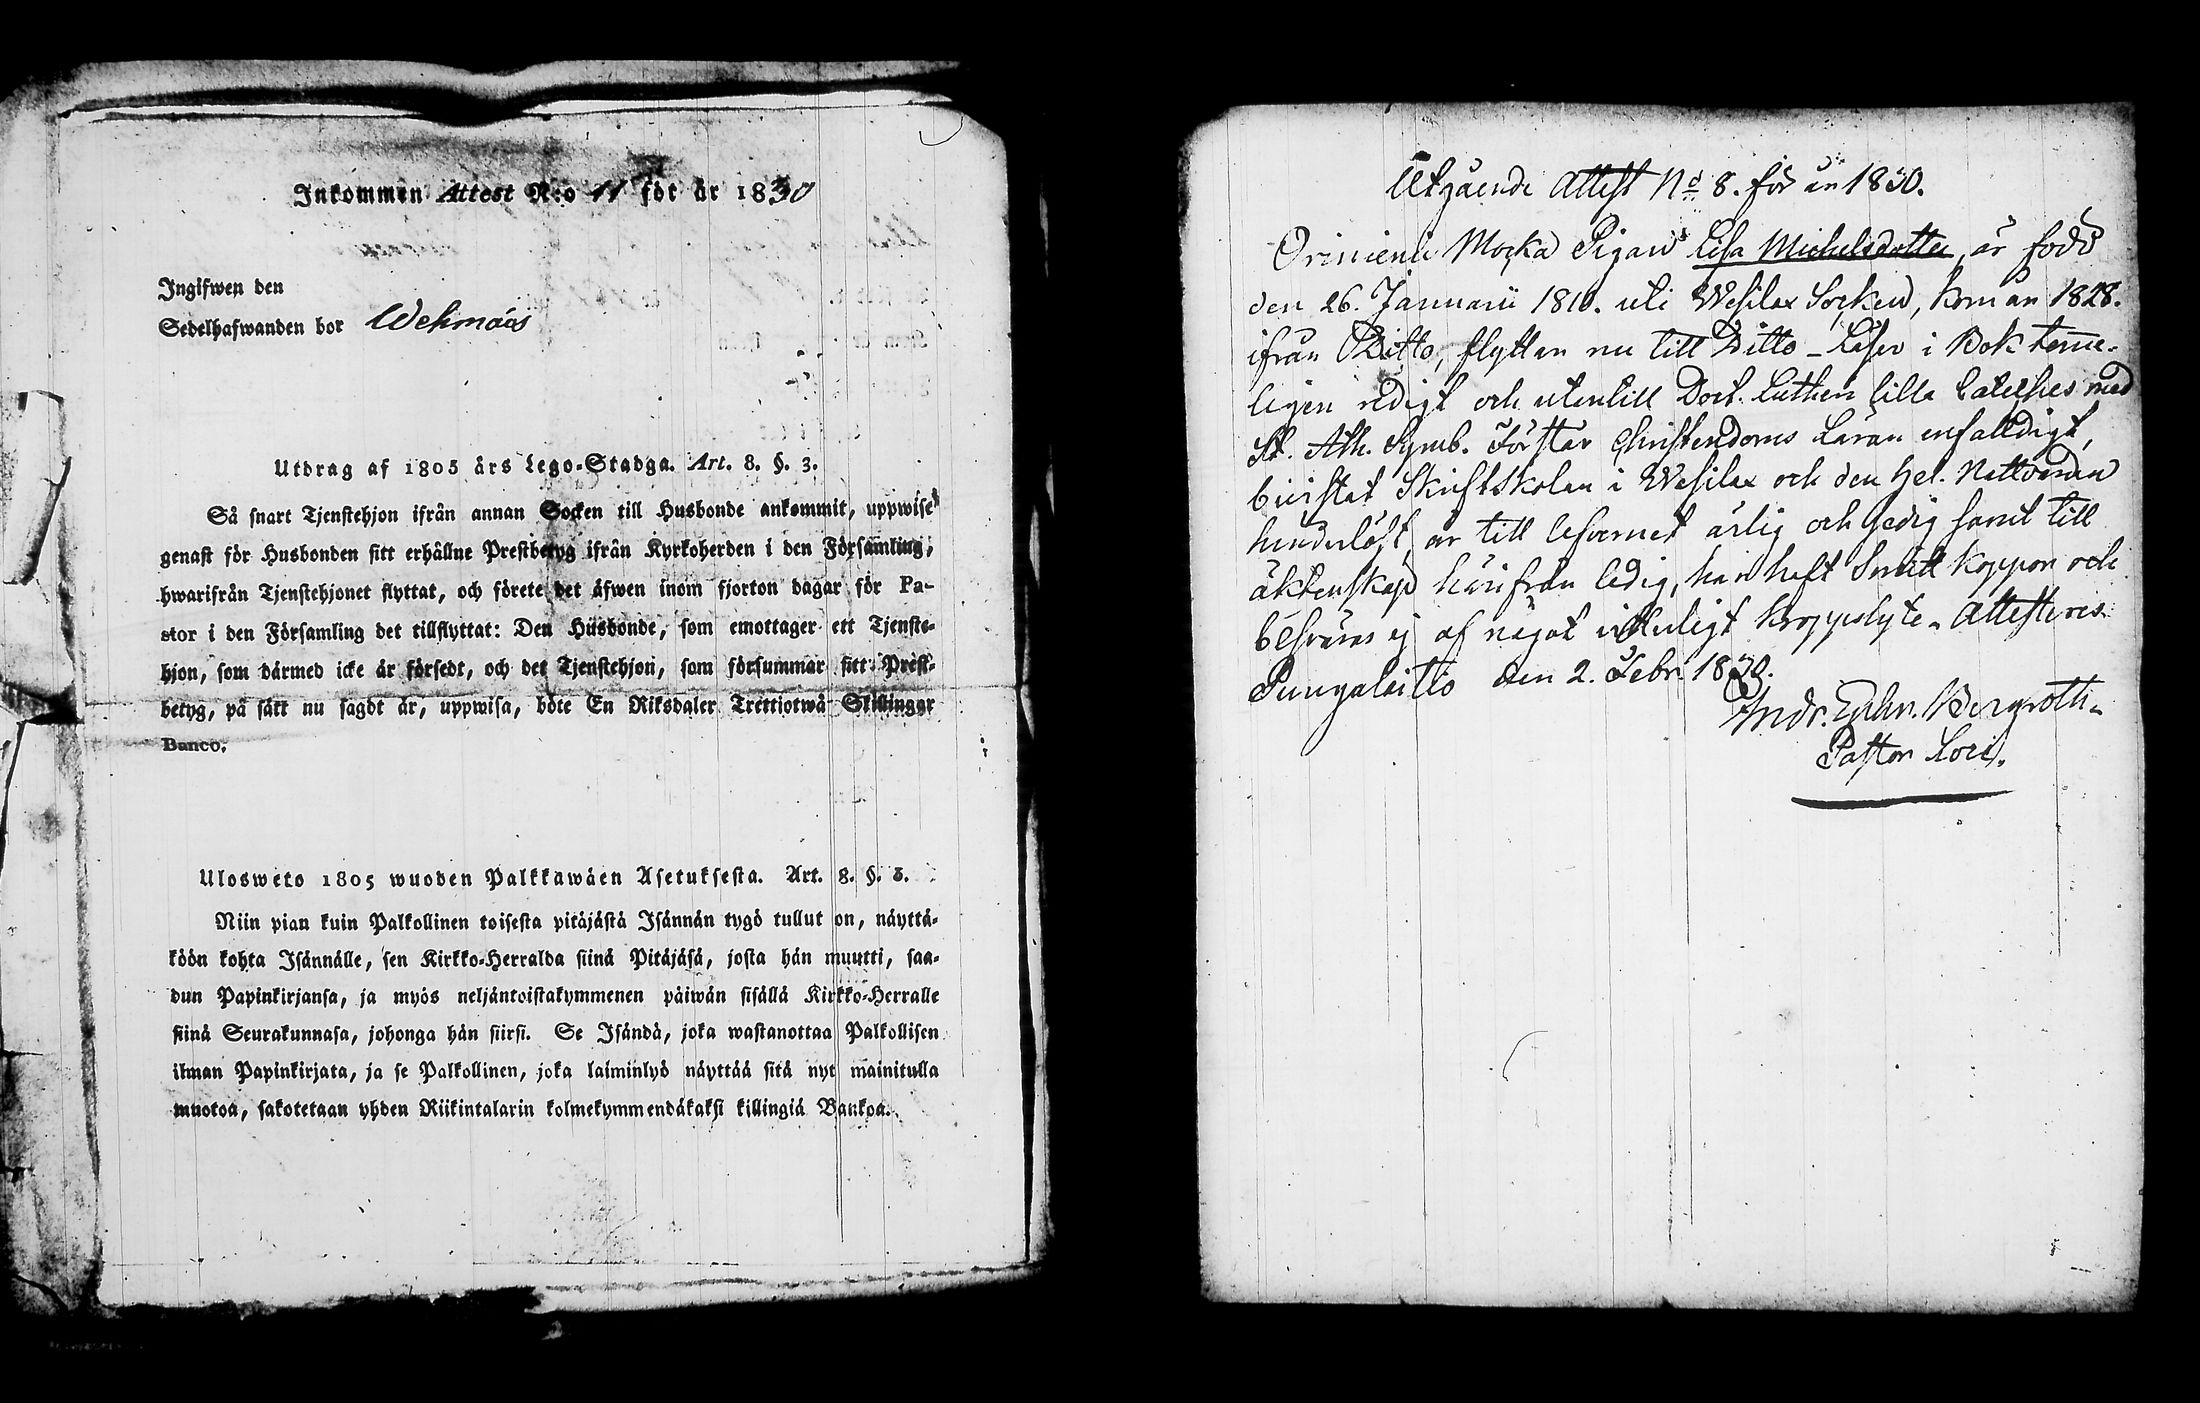 Inkommen Attest N:o 11 för år 1830
Ingifwen den
Sedelhafwanden bor Wehmais
Utdrag af 1805 års Lego-Stadga. Art. 8. §. 3.
Så snart Tjenstehjon ifrån annan Socken till Husbonde ankommit, uppwise
genast för Husbonden sitt erhållne Prestbetyg ifrån Kyrkoherden i den Församling,
hwarifrån Tjenstehjonet flyttat, och förete det äfwen inom fjorton dagar för Pa-
stor i den Församling det tillflyttat: Den Husbonde, som emottager ett Tjenste-
hjon, som därmed icke är försedt, och det Tjenstehjon, som försummar sitt Prest-
betyg, på sätt nu sagdt är, uppwisa, böte En Riksdaler Trettiotwå Skillingar
Banco.
Ulosweto 1805 wuoden Palkkawäen Asetuksesta. Art. 8. §. 3.
Niin pian kuin Palkollinen toisesta pitäjästä Isännän tygö tullut on, näyttä-
köön kohta Isännälle, sen Kirkko-Herralda siinä Pitäjäsä, josta hän muutti, saa-
dun Papinkirjansa, ja myös neljäntoistakymmenen päiwän sisällä Kirkko-Herralle
siinä Seurakunnasa, johonga hän siirsi. Se Isändä, joka wastanottaa Palkollisen
ilman Papinkirjata, ja se Palkollinen, joka laiminlyö näyttää sitä nyt mainitulla
muotoa, sakotetaan yhden Riikintalarin kolmekymmendäkaksi killingiä Bankoa.
Utgående Attest No 8. för år 1830.
Pigan Lisa Michelsdotter, är född
den 26. Januarii 1810. uti Wesilax Socken, kom år 1828.
ifrån Ditto, flyttar nu till Ditto - Läser i Bok temme-
ligen redigt och utantill Doct. Lutheri lilla Cateches med
St. Ath. Symb. Förstår Christendoms Läran enfaldigt,
bivistat Skriftskolan i Wesilax och den Hel. Nattvarden
hinderlöst, är till lefvernet ärlig och sedig samt till
äktenskap härifrån ledig, har haft Smitt koppor och
besväras ej af något vitterligt kroppslyte. Attesteras
Pungalaitio den 2. Febr. 1830.
Andr. Ephr. Bergroth.
Pastor Loci.